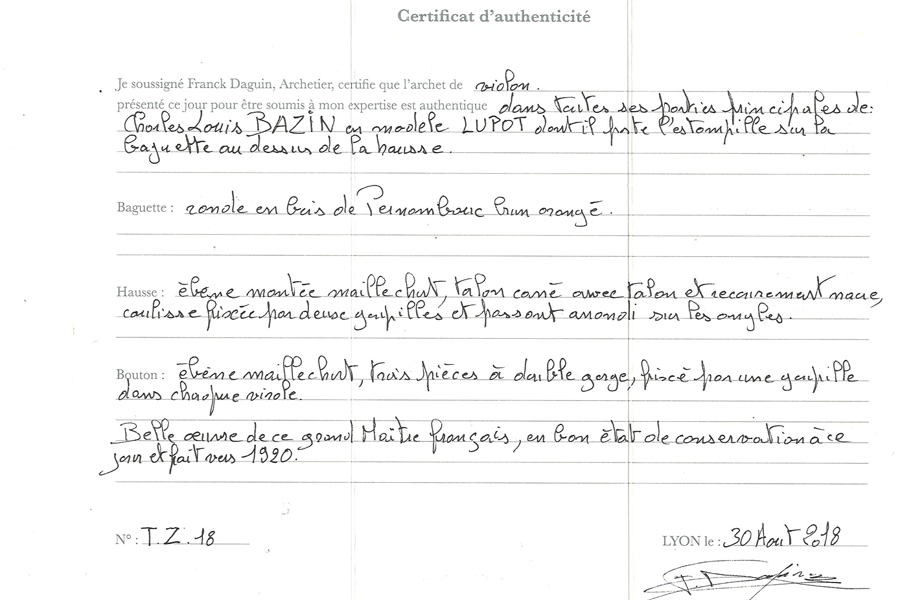 Certificat d'authenticité
Je soussigné Franck Daguin, Archetier, certifie que l'archet de violon.
présenté ce jour pour être soumis à mon expertise est authentique dans toutes ses parties principales de:
Charles Louis BAZIN en modèle LUPOT dont il porte l'estampille sur la
baguette au dessus de la hausse.
Baguette : ronde en bois de Pernambouc brun orangé.
Hausse : ébène montée maillechort, talon carré avec talon et recouvrement nacre,
coulisse fixée par deux goupilles et passant arrondi sur les angles.
Bouton : ébène maillechort, trois pièces à double gorge, fixé par une goupille
dans chaque virole.
Belle œuvre de ce grand Maitre français, en bon état de conservation à ce
jour et fait vers 1920.
N° : T.Z.18
LYON le : 30 Aout 2018
F. Daguin